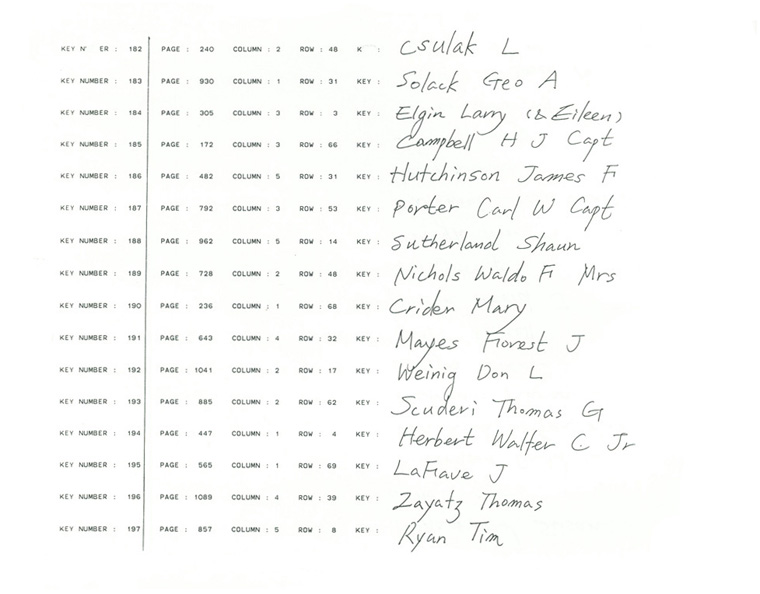 KEY N ER : 182 PAGE : 240 COLUMN : 2 ROW : 48 K : Csulak L
KEY NUMBER : 183 PAGE : 930 COLUMN : 1 ROW : 31 KEY : Solack Geo A
KEY NUMBER : 184 PAGE : 305 COLUMN : 3 ROW : 3 KEY : Elgin Larry (& Eileen)
KEY NUMBER : 185 PAGE : 172 COLUMN : 3 ROW : 66 KEY : Campbell H J Capt
KEY NUMBER : 186 PAGE : 482 COLUMN : 5 ROW : 31 KEY : Hutchinson James F
KEY NUMBER : 187 PAGE : 792 COLUMN : 3 ROW : 53 KEY : Porter Carl W Capt
KEY NUMBER : 188 PAGE : 962 COLUMN : 5 ROW : 14 KEY : Sutherland Shaun
KEY NUMBER : 189 PAGE : 728 COLUMN : 2 ROW : 48 KEY : Nichols Waldo F Mrs
KEY NUMBER : 190 PAGE : 236 COLUMN : 1 ROW : 68 KEY : Crider Mary
KEY NUMBER : 191 PAGE : 643 COLUMN : 4 ROW : 32 KEY : Mayes Forest J
KEY NUMBER : 192 PAGE : 1041 COLUMN : 2 ROW : 17 KEY : Weinig Don L
KEY NUMBER : 193 PAGE : 885 COLUMN : 2 ROW : 62 KEY : Scuderi Thomas G
KEY NUMBER : 194 PAGE : 447 COLUMN : 1 ROW : 4 KEY : Herbert Walter C Jr
KEY NUMBER : 195 PAGE : 565 COLUMN : 1 ROW : 69 KEY : LaFlave J
KEY NUMBER : 196 PAGE : 1089 COLUMN : 4 ROW : 39 KEY : Zayatz Thomas
KEY NUMBER : 197 PAGE : 857 COLUMN : 5 ROW : 8 KEY : Ryan Tim